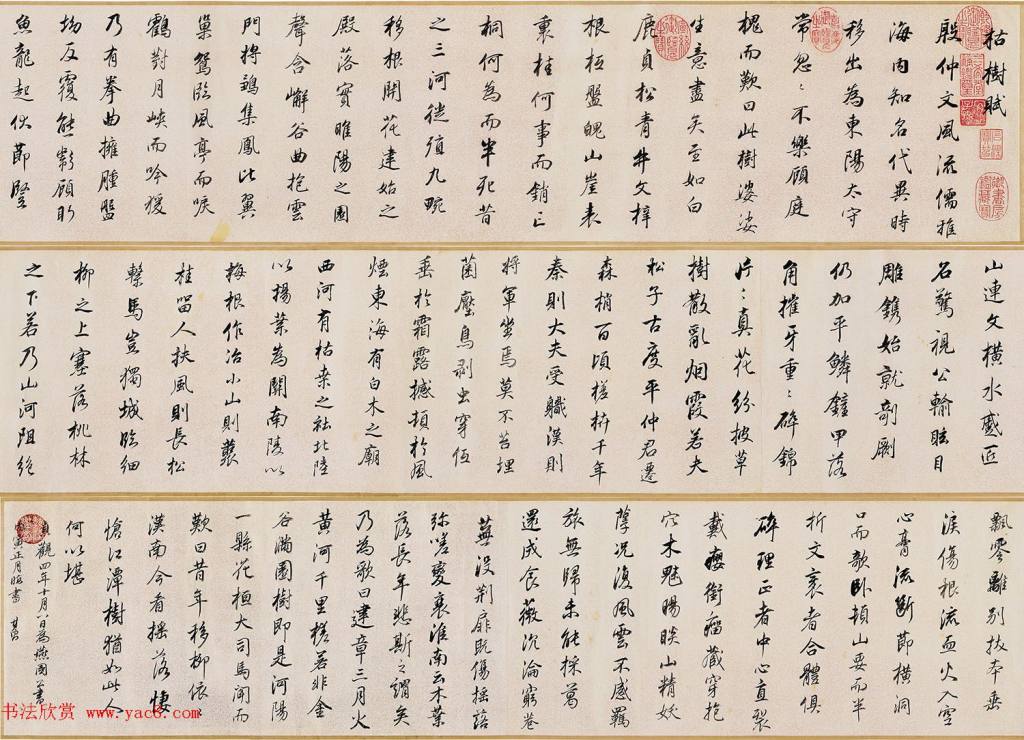 枯樹賦
殷仲文風流儒雅
海内知名代異時
移出為東陽太守
常忽〻不樂顧庭
槐而歎曰此樹婆娑
生意盡矣至如白
鹿貞松青牛文梓
根柢盤魄山崖表
裏桂何事而銷亡
桐何為而半死昔
之三河徙殖九畹
移根開花建始之
殿落實睢陽之園
聲含嶰谷曲抱雲
門將鶵集鳳比翼
巢鴛臨風亭而唳
鶴對月峽而吟猨
乃有拳曲擁腫盤
坳反覆熊彪顧盼
魚龍起伏節竪
山連文橫水蹙匠
石驚視公輸眩目
雕鐫始就剞劂
仍加平鱗鏟甲落
角摧牙重〻碎錦
片〻真花紛披草
樹散亂烟霞若夫
松子古度平仲君遷
森梢百頃槎枿千年
秦則大夫受職漢則
將軍坐焉莫不苔埋
菌壓鳥剥虫穿
垂於霜露撼頓於風
煙東海有白木之廟
西河有枯桑之社北陸
以楊葉為關南陵以
梅根作冶小山則叢
桂留人扶風則長松
繫馬豈獨城臨細
柳之上塞落桃林
之下若乃山河阻絶
飄零離別拔本垂
淚傷根流血火入空
心膏流斷節橫洞
口而欹卧頓山要而半
折文衺者合體俱
碎理正者中心直裂
戴癭銜瘤藏穿抱
穴木魅睗睒山精妖
孽況復風雲不感羈
旅無歸未能採葛
還成食薇沉淪窮巷
蕪没荆扉既傷搖落
弥嗟變衰淮南云木葉
落長年悲斯之謂矣
乃為歌曰建章三月火
黃河千里槎若非金
谷滿園樹即是河陽
一縣花桓大司馬聞而
歎曰昔年移柳依〻
漢南今看搖落悽
愴江潭樹猶如此人
何以堪
貞觀四年十月八日為燕國公書
寅正月臨書
书法欣赏 www.yac8.com